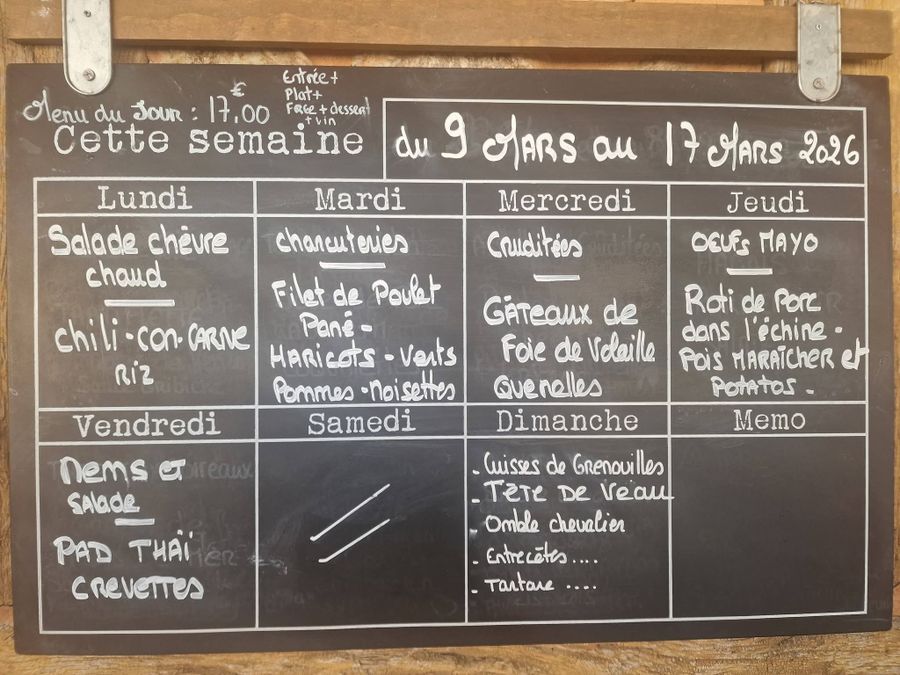 Menu du Jour : 17.00 €
Entrée +
Plat +
+ dessert
+ vin
Cette semaine
du 9 Mars au 17 Mars 2026
Lundi
Salade chèvre
chaud
Chili-con-carne
Riz
Mardi
Charcuteries
Filet de Poulet
Pané -
Haricots-Verts
Pommes-Noisettes
Mercredi
Crudités
Gâteaux de
Foie de Volaille
Quenelles
Jeudi
Oeufs Mayo
Roti de Porc
dans l'échine -
Pois Maraîcher et
Potatos -
Vendredi
Nems et
Salade
Pad Thaï
Crevettes
Samedi
Dimanche
- Cuisses de Grenouilles
- Tête de Veau
- Omble chevalier
- Entrecôtes ....
- Tartare ....
Memo